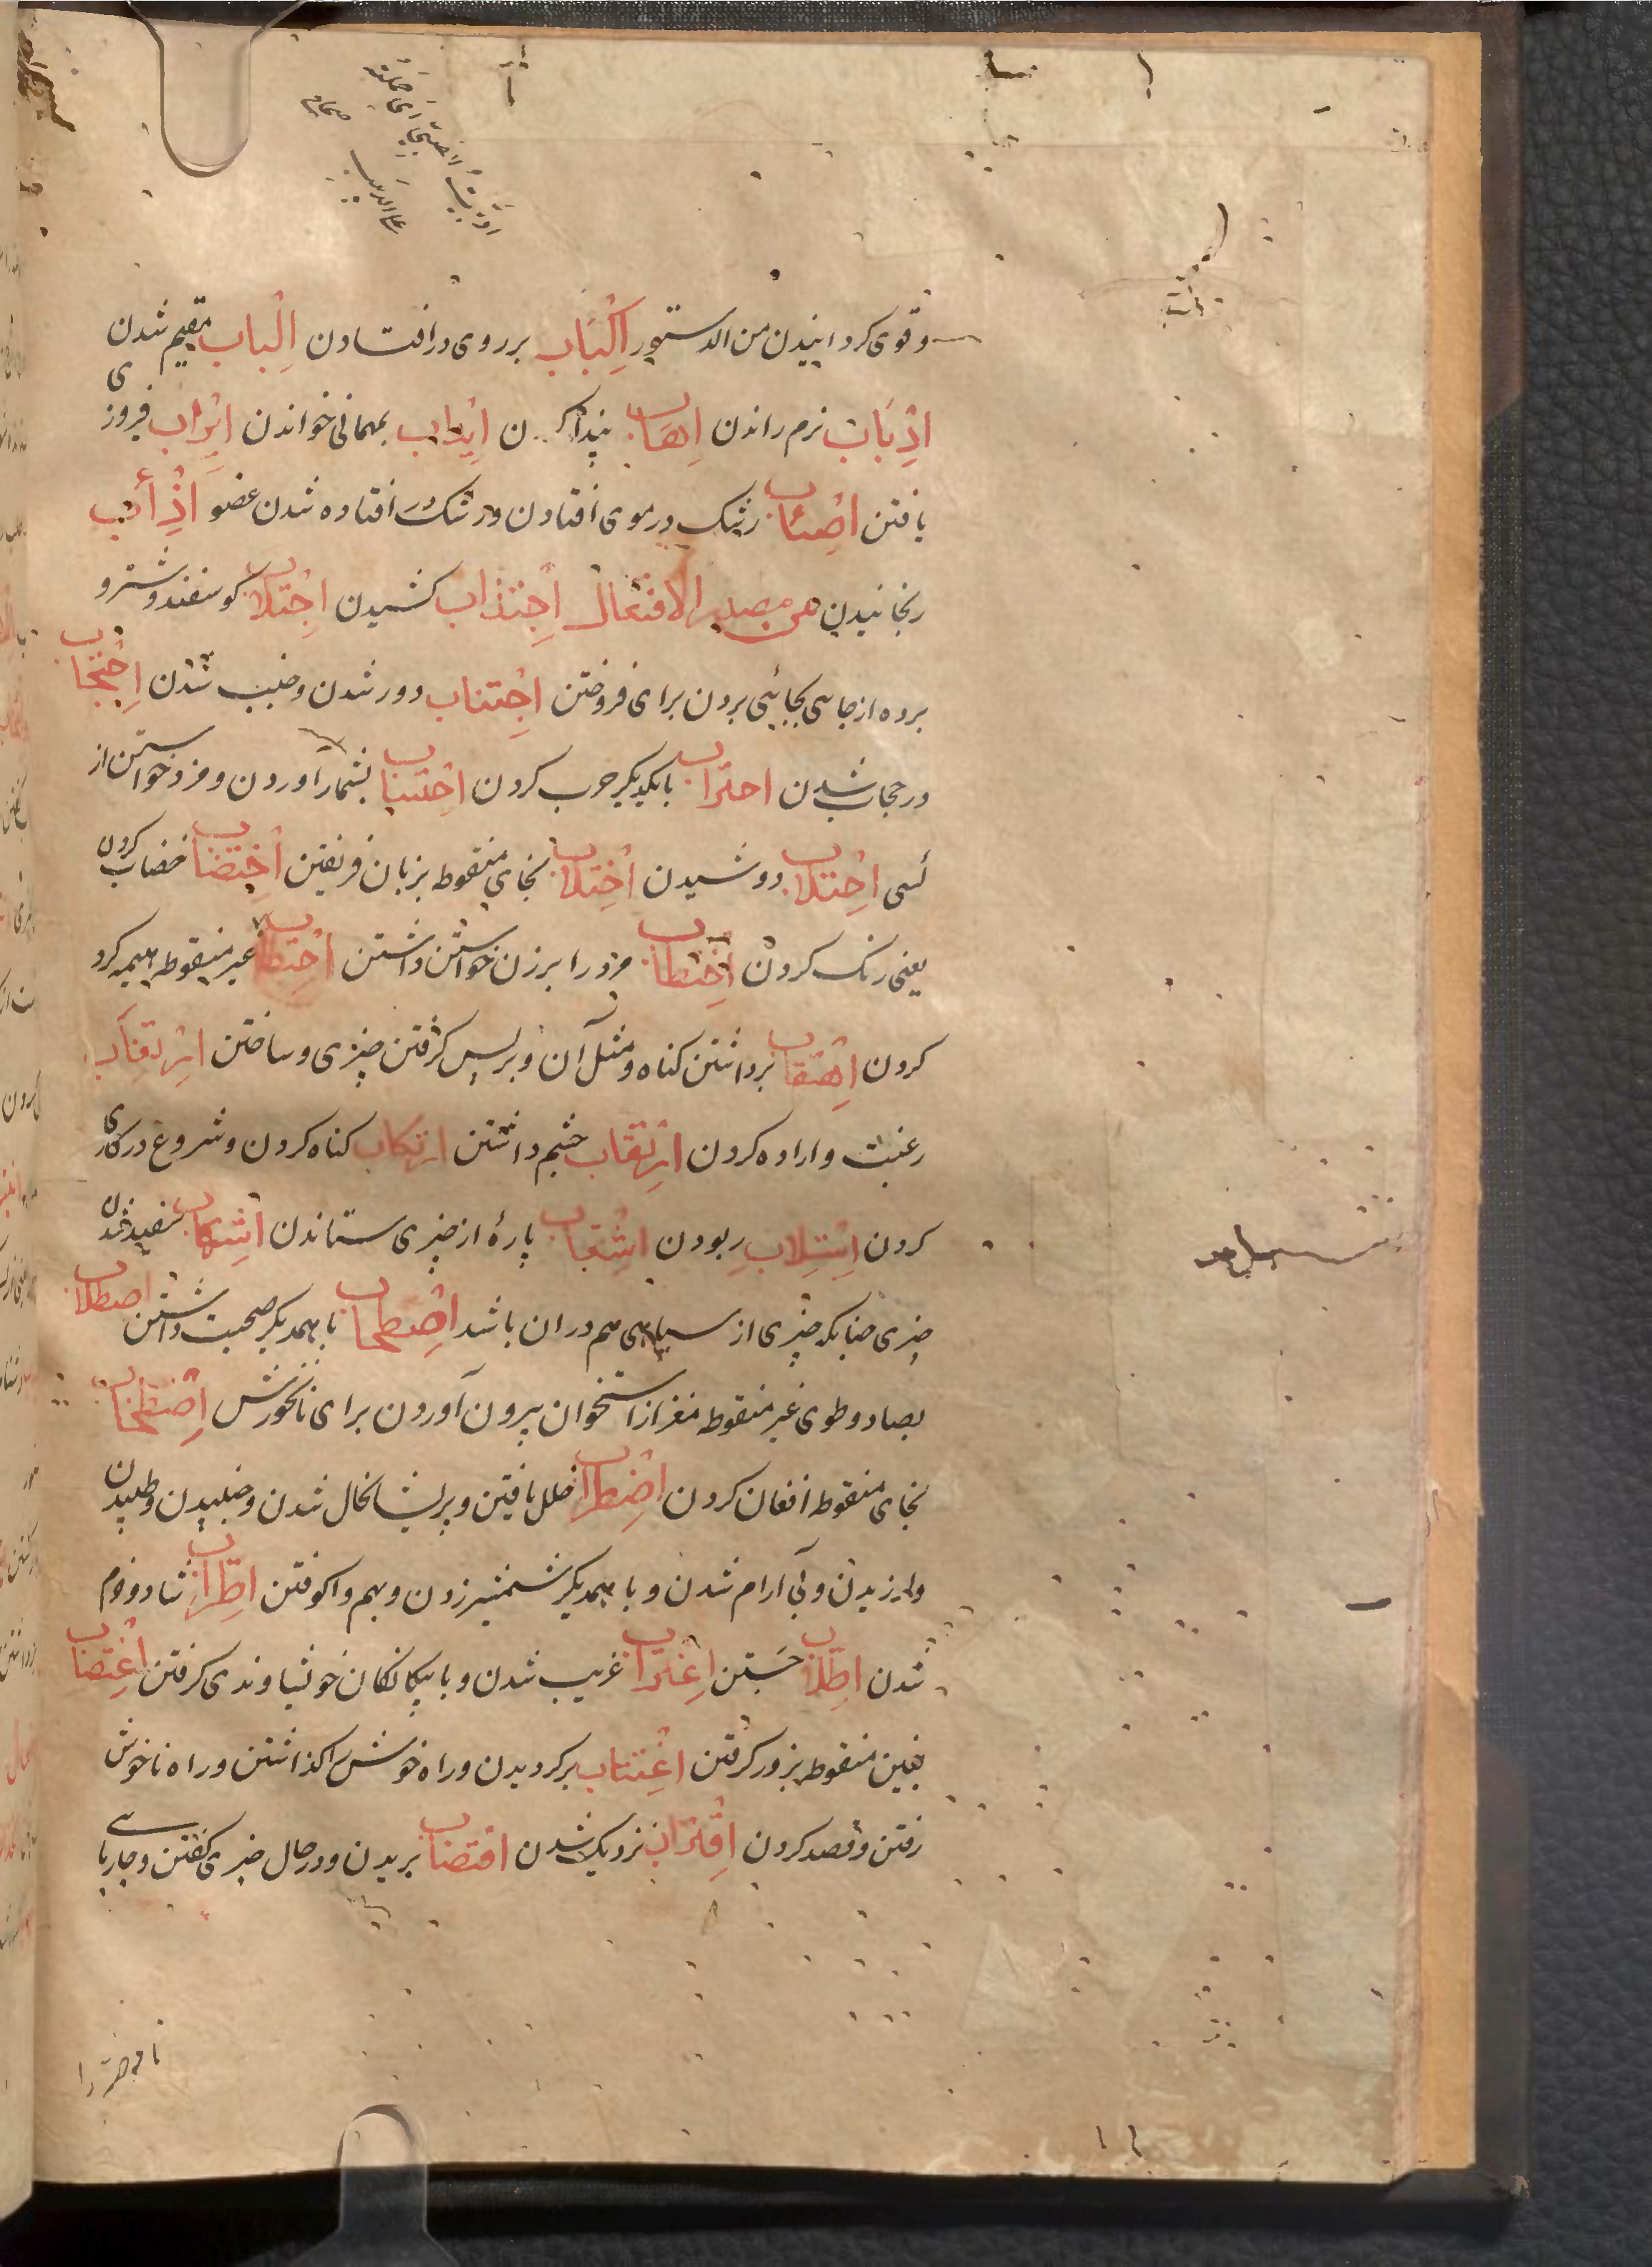 وقوی کردانیدن من الدستور اکباب بر روی درافتادن الباب مقیم شدن
اذباب نرم راندن اهباب ن ایداب بمهمانی خواندن اتراب فیروزی
یافتن اصئاب رشک در موی افتادن و افتاده شدن عضو اذأب
رنجانیدن من مصدر الافتعال اجتذاب کشیدن اجتلاب کوسفند و شتر و
برده از جاهی بجائی بردن برای فروختن اجتناب دور شدن و جنب شدن احتجاب
در حجاب شدن احتراب با یکدیکر حرب کردن احتساب بشمار آوردن و مزد خواستن از
کسی احتلاب دوشیدن اختلاب بخای منقوطه بزبان فریفتن اختضاب خضاب کردن
یعنی رنک کردن اختطاب مرد را بر زن خواستن داشتن احتطاب غیر منقوطه هیمه کرد
کردن احتقاب برداشتن کناه و مثل آن و برپس کرفتن چیزی و ساختن ارتغاب
رغبت و اراده کردن ارتقاب چشم داشتن ارتکاب کناه کردن و شروع در کاری
کردن استلاب ربودن اشتعاب پارهٔ از چیزی ستاندن اشهاب سفید شدن
چیزی چنانکه چیزی از سیاهی هم در ان باشد اصطحاب با همدیکر صحبت داشتن اصطلاب
بصاد و طوی غیر منقوطه مغز از استخوان بیرون آوردن برای نانخورش اصطخاب
بخای منقوطه افغان کردن اضطراب خلل یافتن و پریشانحال شدن و جنبیدن و طپیدن
و لرزیدن و بی آرام شدن و با همدیکر شمشیر زدن و بهم واکوفتن اطراب شاد و خرم
شدن اطلاب جستن اغتراب غریب شدن و با بیکانکان خویشاوندی کرفتن اغتصاب
بغین منقوطه بزور کرفتن اعتتاب برکردیدن و راه خوش را کذاشتن و راه ناخوش
رفتن و قصد کردن اقتراب نزدیک شدن اقتضاب بریدن و در حال چیزی کفتن و چارپای